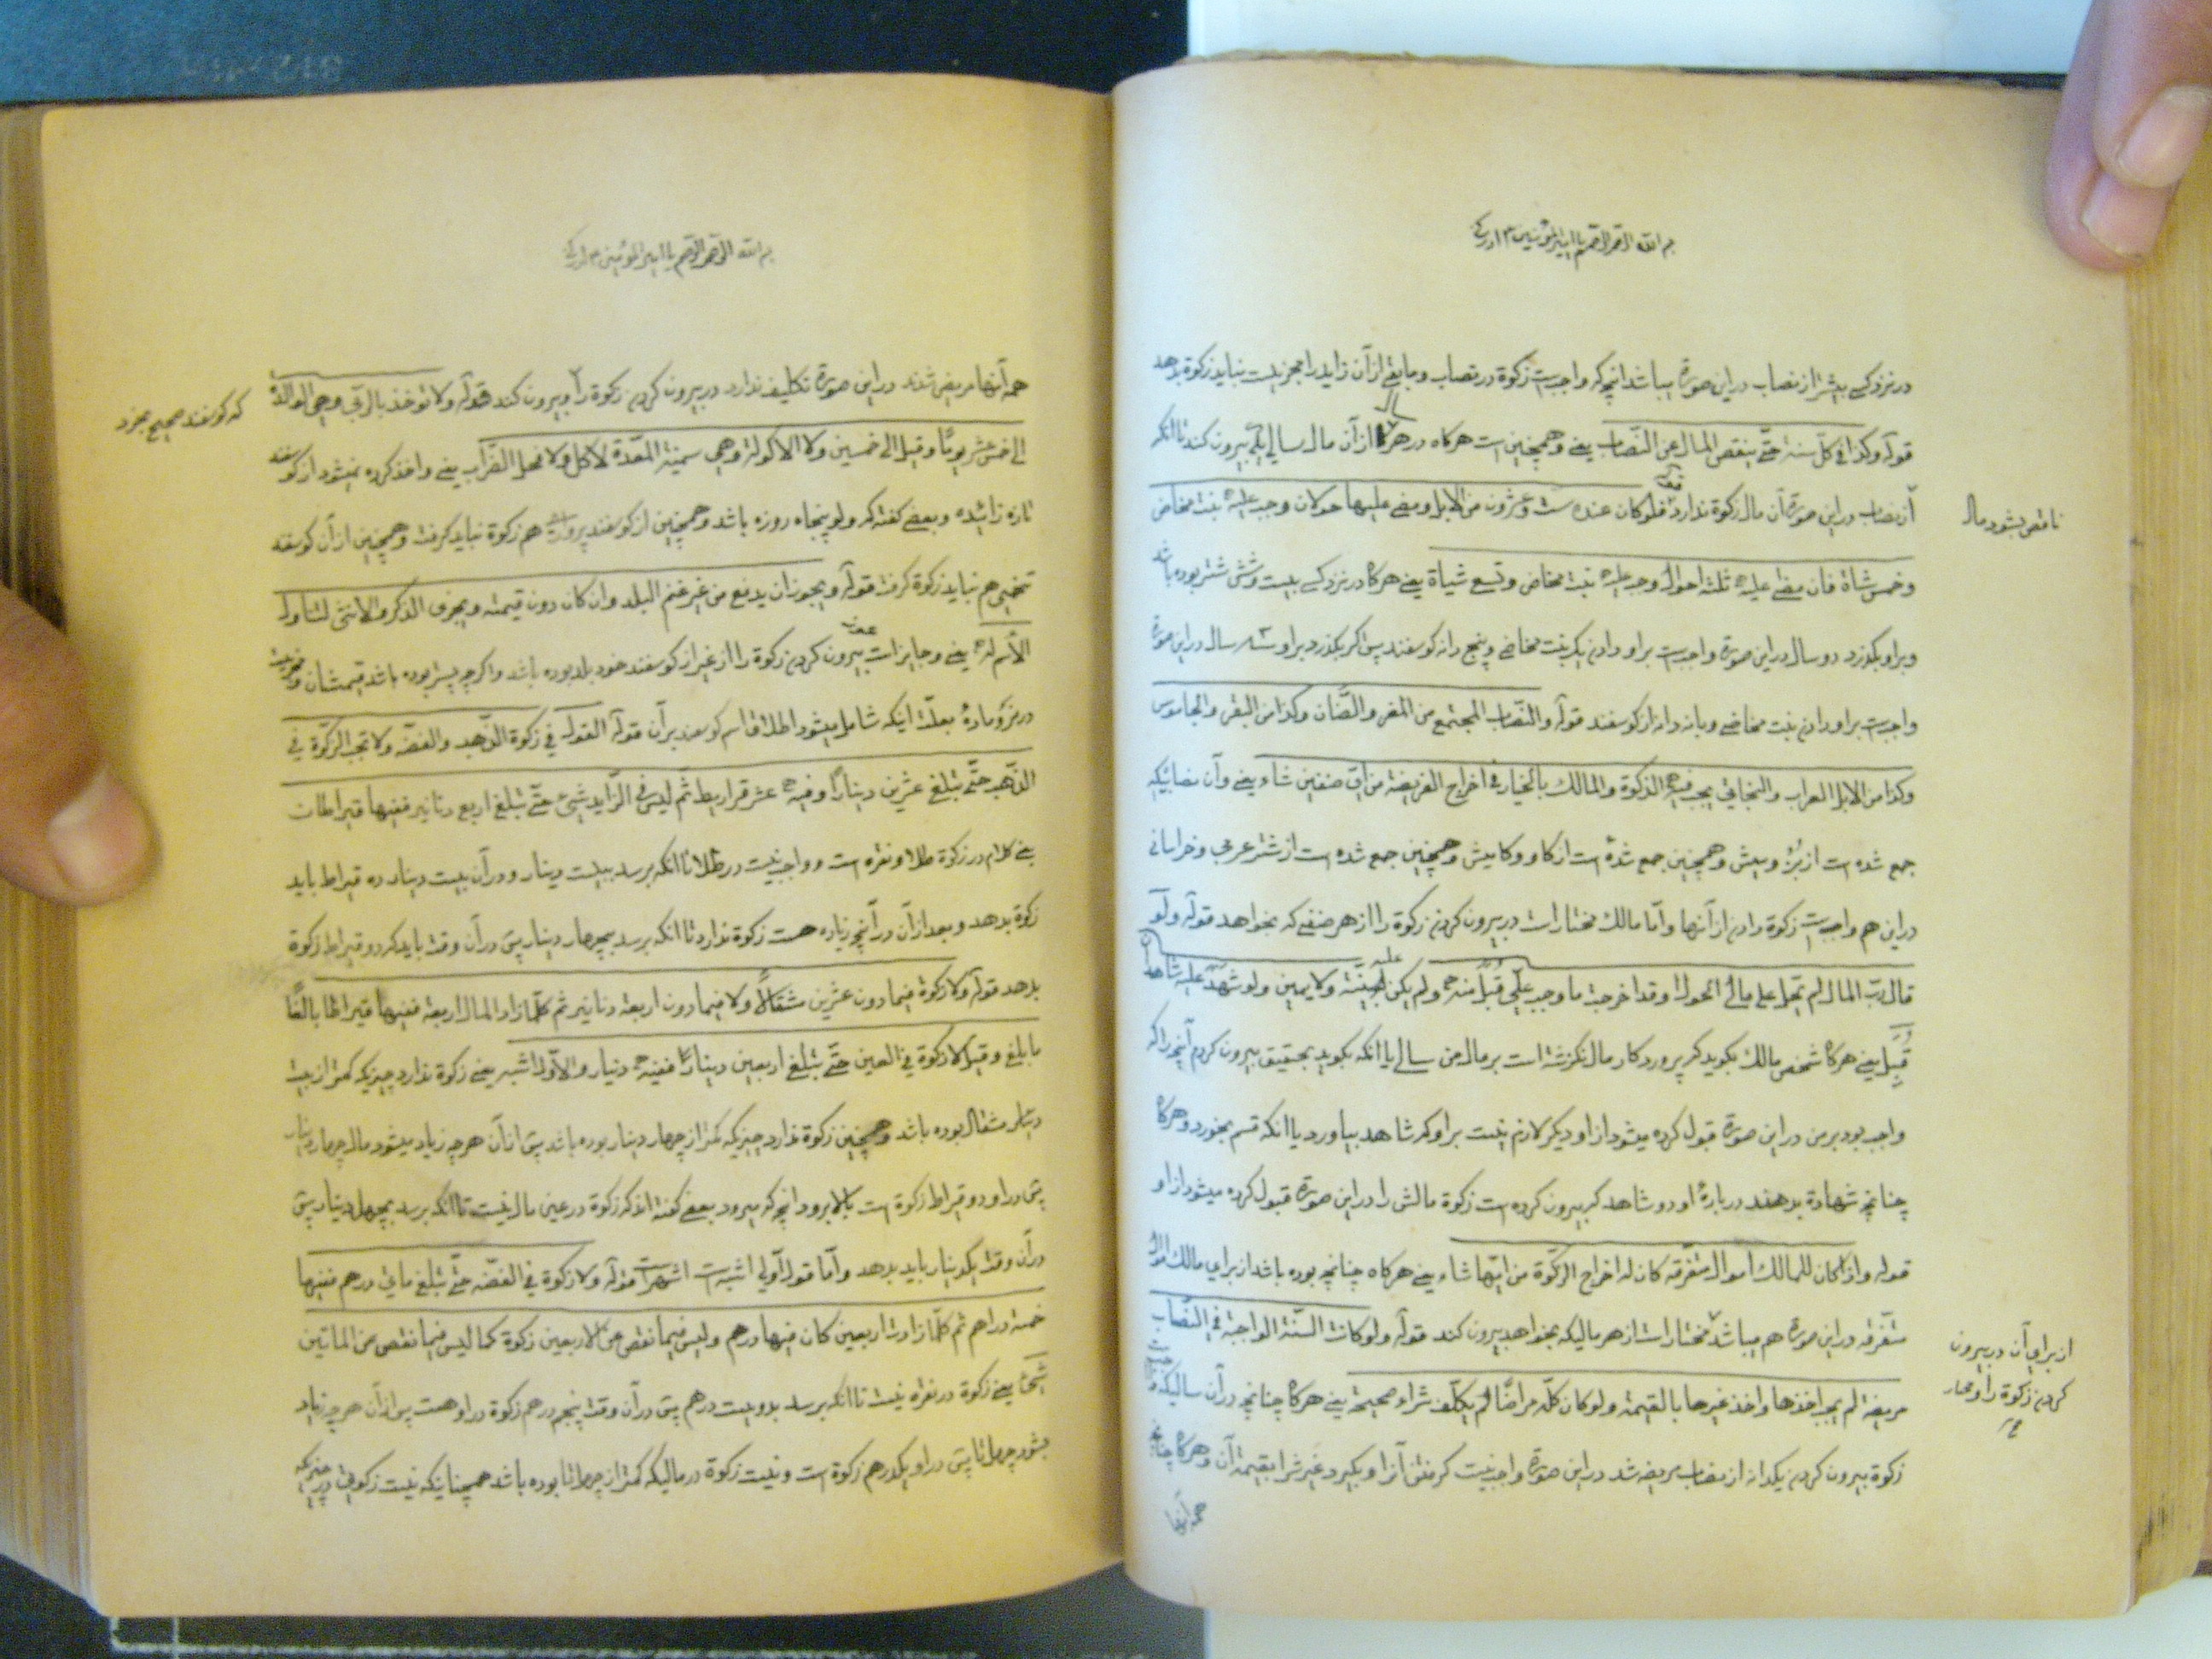 بسم الله الرحمن الرحیم یا امیر المؤمنین ادرکنی
در نزد کسے بیشتر از نصاب در این صورة میباشد آنچه که واجبست زکوة در نصاب و مابقے از آن زاید را مجبر نیست نباید زکوة بدهد
قوله وکذا فی کلّ سنة حتّے ینقص المال عن النّصاب یعنے و همچنین است هرگاه در هر سال از آن مال سالے بیرون کند تا آنکه
ناقص بشود مال
از نصاب در این صورة آن مال زکوة ندارد قوله فلو کان عنده ست و عشرون من الابل و مضے علیها حولان وجب علیه بنت مخاض
و خمس شاة فان مضے علیه ثلثة احوال وجب علیه بنت مخاض و تسع شیاة یعنے هرگاه در نزد کسے بیست و شش شتر بوده باشد
و بر او بگذرد دو سال در این صورة واجبست بر او دادن یک بنت مخاضے و پنج دانه گوسفند پس اگر بگذرد بر او سه سال در این صورة
واجبست بر او دادن بنت مخاضے و با نه دانه از گوسفند قوله و النّصاب المجتمع من المعز و الضّان وکذا من البقر و الجاموس
وکذا من الابل العراب و البخاتی یجب فیه الزکوة و المالک بالخیار فی اخراج الفریضة من ایّ صنفین شاء یعنے و آن نصابیکه
جمع شده است از بز و میش و همچنین جمع شده است از گاو و گامیش و همچنین جمع شده است از شتر عربی و خراسانی
در این هم واجبست زکوة دادن از آنها و امّا مالک مختار است در بیرون کردن زکوة را از هر صنفے که بخواهد قوله و لو
قال ربّ المال لم یحل علے مالی الحول او قد اخرجت ما وجب علیّ قبل منه و لم یکن علیه بیّنة و لا یمین و لو شهد علیه شاهدان
قُبِل یعنے هرگاه شخص مالک بگوید که پروردگار مال نگذشته است بر مال من سالے یا آنکه بگوید بتحقیق بیرون کردم آنچه را که
واجب بود بر من در این صورة قبول کرده میشود از او دیگر لازم نیست بر او که شاهد بیاورد یا آنکه قسم بخورد و هرگاه
چنانچه شهادة بدهند دربارهٔ او دو شاهد که بیرون کرده است زکوة مالش را در این صورة قبول کرده میشود از او
قوله و اذا کان للمالک اموال متفرّقه کان له اخراج الزکوة من ایّها شاء یعنے هرگاه چنانچه بوده باشد از برای مالک اموال
متفرّقه در این صورة هم میباشد مختار است از هر مالیکه بخواهد بیرون کند قوله و لو کانت السنّة الواجبة فی النّصاب
از برای آن در بیرون
کردن زکوة را و مختار
مریضة لم یجب اخذها و اخذ غیرها بالقیمة و لو کان کلّه مراضًا لم یکلّف شراء صحیحة یعنے هرگاه چنانچه در آن سالیکه
زکوة بیرون کردن یکدانه از نصاب مریضه شد در این صورة واجب نیست گرفتن آنرا و بگیرد غیرش را بقیمة آن و هرگاه چنانچه
همه آنها
بسم الله الرحمن الرحیم یا امیر المؤمنین ادرکنی
همه آنها مریض شدند در این صورة تکلیف ندارد در بیرون کردن زکوة را و بیرون کند قوله و لا تؤخذ بالربّی و هی الوالدة
که گوسفند صحیح بخرد
الی خمس عشر یومًا و قیل الی خمسین و لا الاکولة و هی سمینة المعدّة للاکل و لا فحل الضّراب یعنے و اخذ کرده نمیشود از گوسفند
تازه زائیده و بعضے گفته که ولو پنجاه روزه باشد و همچنین از گوسفند پروری هم زکوة نباید گرفت و همچنین از آن گوسفند
تخمی هم نباید زکوة گرفت قوله و یجوز ان یدفع من غیر غنم البلد و ان کان دون قیمته و یجزی الذکر و الانثی لتناول
الاسم له یعنے و جایز است بیرون کردن زکوة را از غیر از گوسفند خود بلد بوده باشد و اگر چه پستر بوده باشد قیمتشان
در نر و مادهٔ بعلّت اینکه شامل میشود اطلاق اسم گوسفند بر آن قوله القول فی زکوة الذّهب و الفضّه و لا تجب الزکوة فی
الذّهب حتّے تبلغ عشرین دینارًا و فیه عشر قراریط ثم لیس فی الزّاید شیئ حتّے تبلغ اربع دنانیر ففیها قیراطان
یعنے کلام در زکوة طلا و نقره است و واجب نیست در طلا تا آنکه برسد ببیست دینار و در آن بیست دینار ده قیراط باید
زکوة بدهد و بعد از آن در آنچه زیاده هست زکوة ندارد تا آنکه برسد بچهار دینار پس در آن وقت باید که دو قیراط زکوة
بدهد قوله و لا زکوة فیما دون عشرین مثقالًا و لا فیما دون اربعة دنانیر ثم کلّما زاد المال اربعة ففیها قیراطان بالغًا
ما بلغ و قیل لا زکوة فی العین حتّے تبلغ اربعین دینارًا ففیه دینار و الاوّل اشهر یعنے زکوة ندارد چیزیکه کمتر از بیست
دینار مثقال بوده باشد و همچنین زکوة ندارد چیزیکه کمتر از چهار دینار بوده باشد پس از آن هر چه زیاد میشود مال چهار دینار
پس در او دو قیراط زکوة است بالا برود آنچه که میرود بعضے گفته اند که زکوة در عین مال نیست تا آنکه برسد بچهل دینار پس
در آن وقت یکدینار باید بدهد و امّا قول اوّلی اشبه است اشهر است قوله و لا زکوة فی الفضّه حتّے تبلغ مأتی درهم ففیها
خمسة دراهم ثم کلّما زادت اربعین کان فیها درهم و لیس فیما نقص عن الاربعین زکوة کما لیس فیما نقص عن المأتین
شیئ یعنے زکوة در نقره نیست تا آنکه برسد بدویست درهم پس در آن وقت پنجم درهم زکوة در او هست پس از آن هر چه زیاد
بشود چهل تا پس در او یکدرهم زکوة است و نیست زکوة در مالیکه کمتر از چهل تا بوده باشد همچنانکه نیست زکوة در چیزیکه